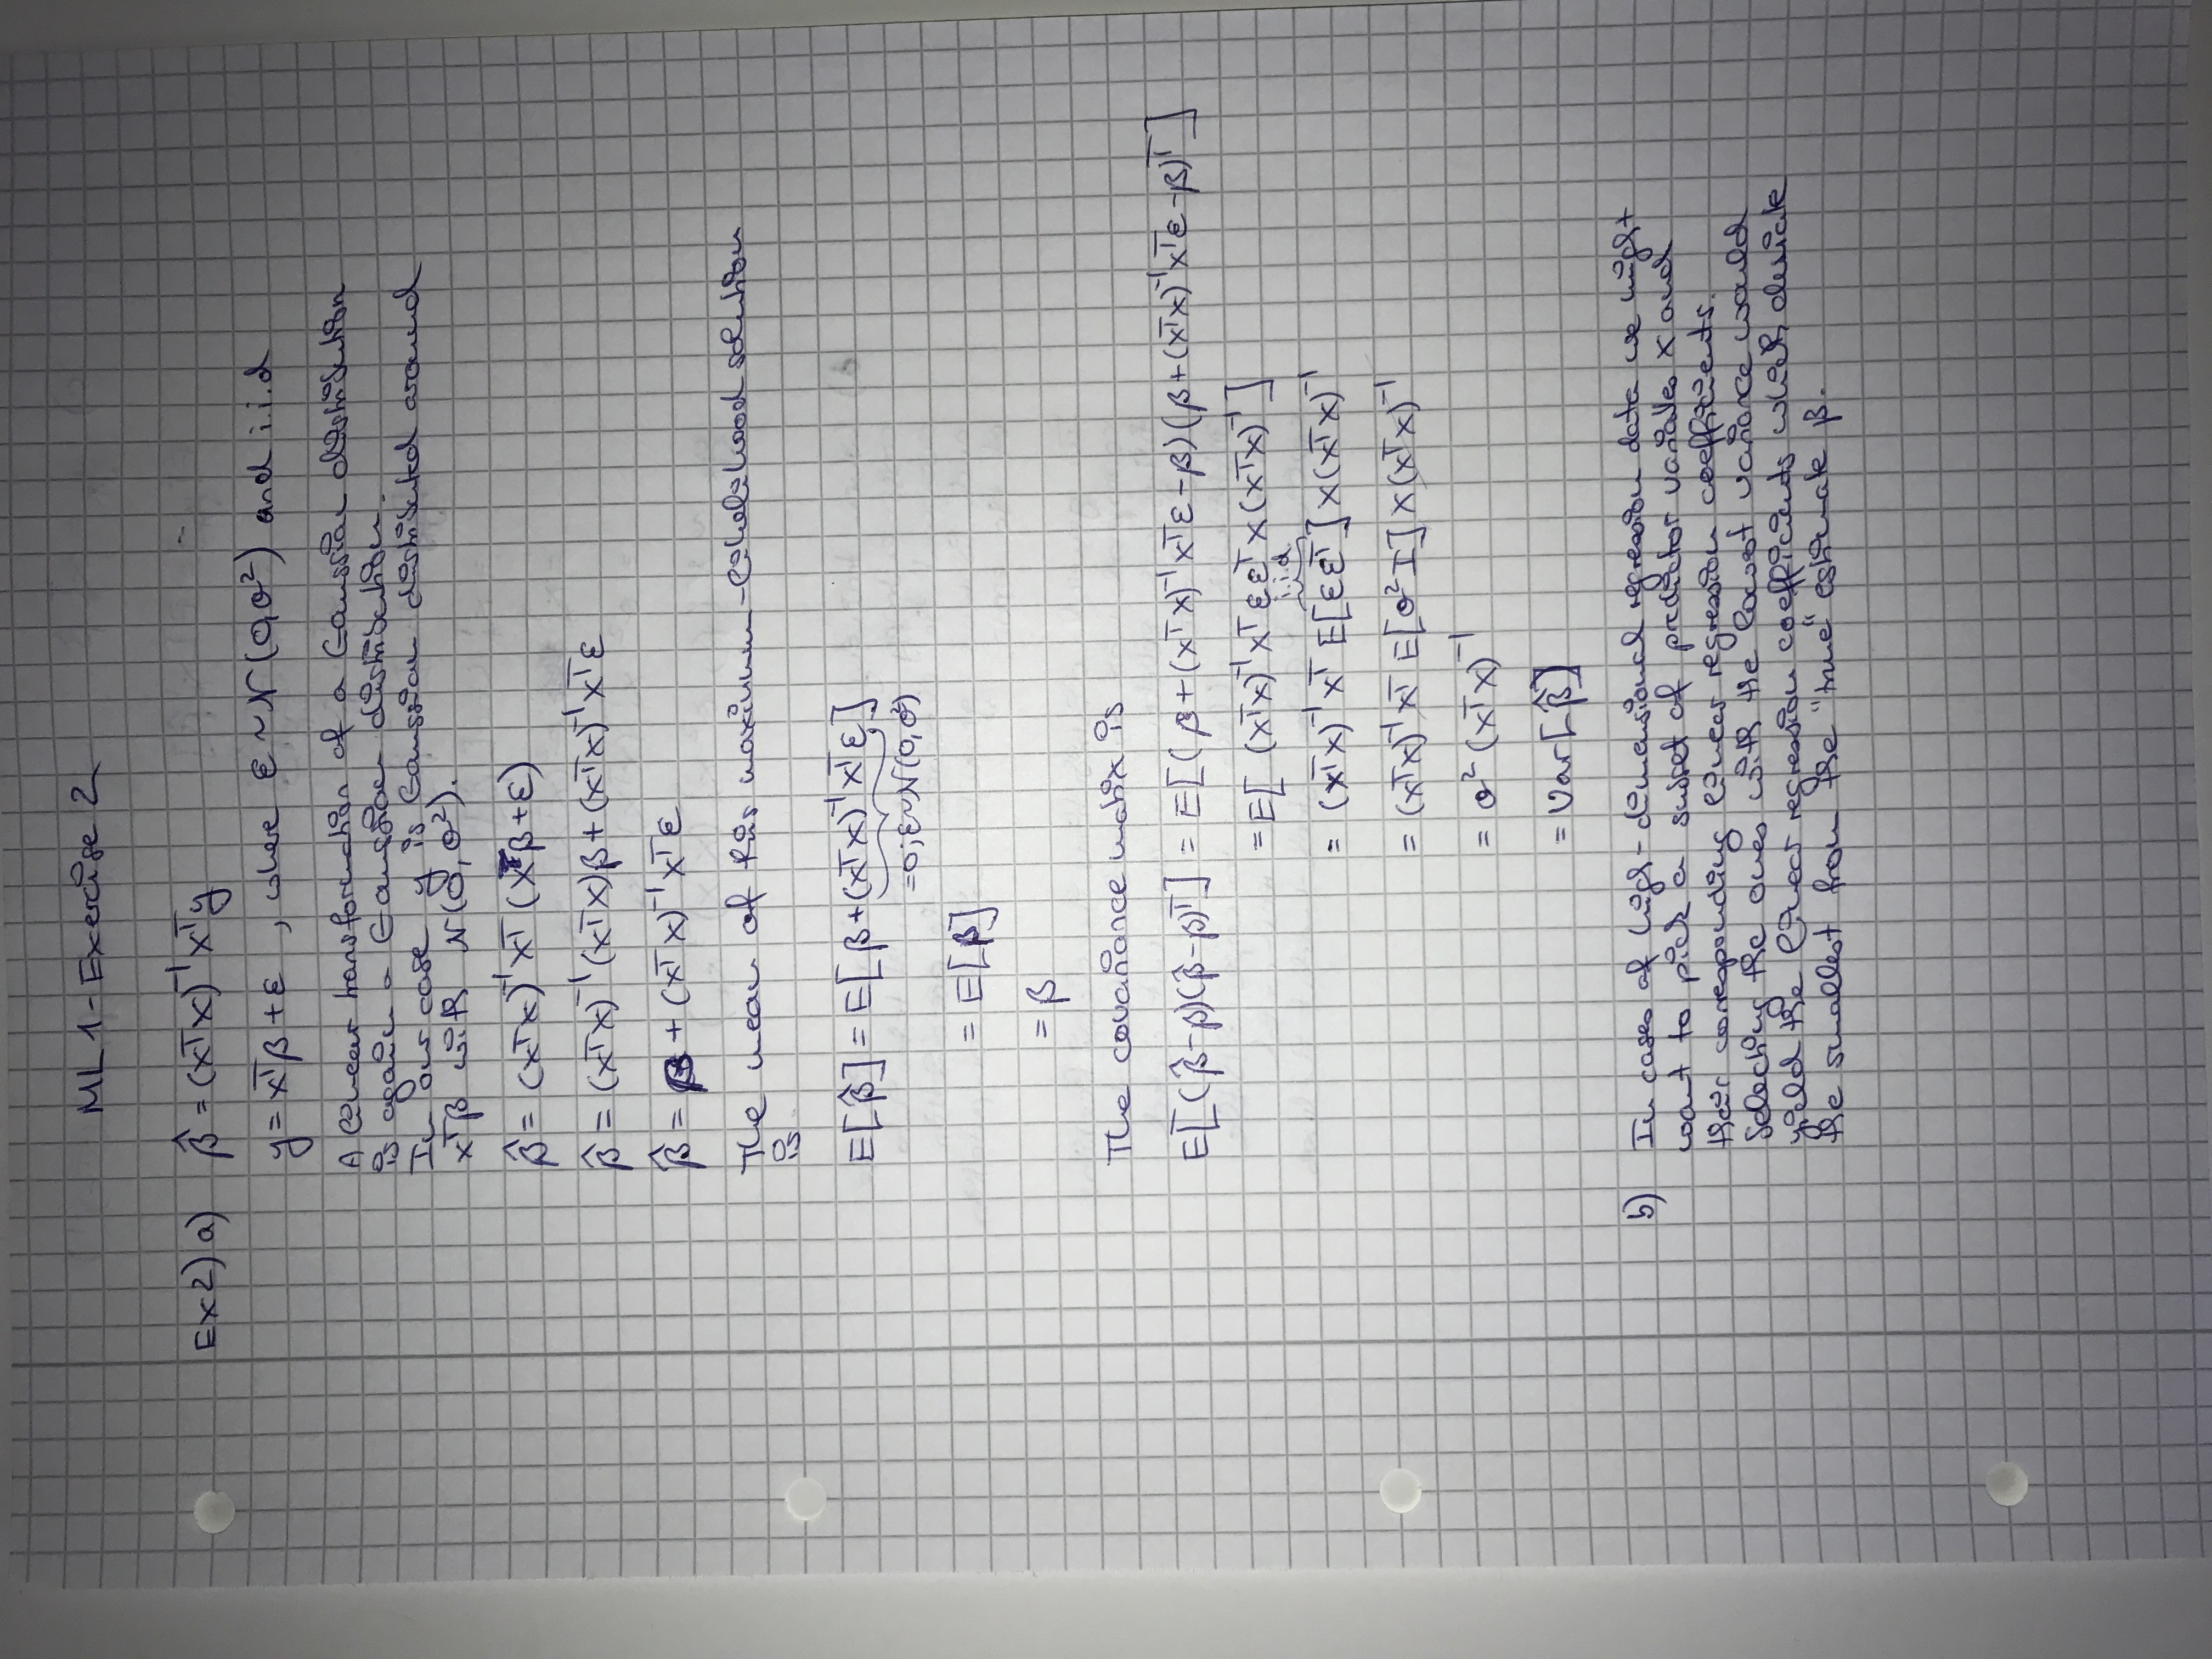 ML 1 - Exercise 2
Ex2) a) β̂ = (XᵀX)⁻¹Xᵀy
y = xᵀβ + ε , where ε ~ N(0,σ²) and i.i.d
A linear transformation of a Gaussian distribution
is again a Gaussian distribution.
In our case y is Gaussian distributed around
xᵀβ with N(0,σ²).
β̂ = (XᵀX)⁻¹Xᵀ(Xβ+ε)
β̂ = (XᵀX)⁻¹(XᵀX)β + (XᵀX)⁻¹Xᵀε
β̂ = β + (XᵀX)⁻¹Xᵀε
The mean of this maximum-likelihood solution
is
E[β̂] = E[β+(XᵀX)⁻¹Xᵀε]
=0; ε~N(0,σ²)
= E[β]
= β
The covariance matrix is
E[(β̂-β)(β̂-β)ᵀ] = E[(β+(XᵀX)⁻¹Xᵀε-β)(β+(XᵀX)⁻¹Xᵀε-β)ᵀ]
= E[(XᵀX)⁻¹Xᵀεεᵀ X(XᵀX)⁻¹]
i.i.d
= (XᵀX)⁻¹Xᵀ E[εεᵀ] X(XᵀX)⁻¹
= (XᵀX)⁻¹Xᵀ E[σ²I] X(XᵀX)⁻¹
= σ²(XᵀX)⁻¹
= Var[β̂]
b) In cases of high-dimensional regression data we might
want to pick a subset of predictor variables x and
their corresponding linear regression coefficients.
Selecting the ones with the lowest variance would
yield the linear regression coefficients which deviate
the smallest from the "true" estimate β.